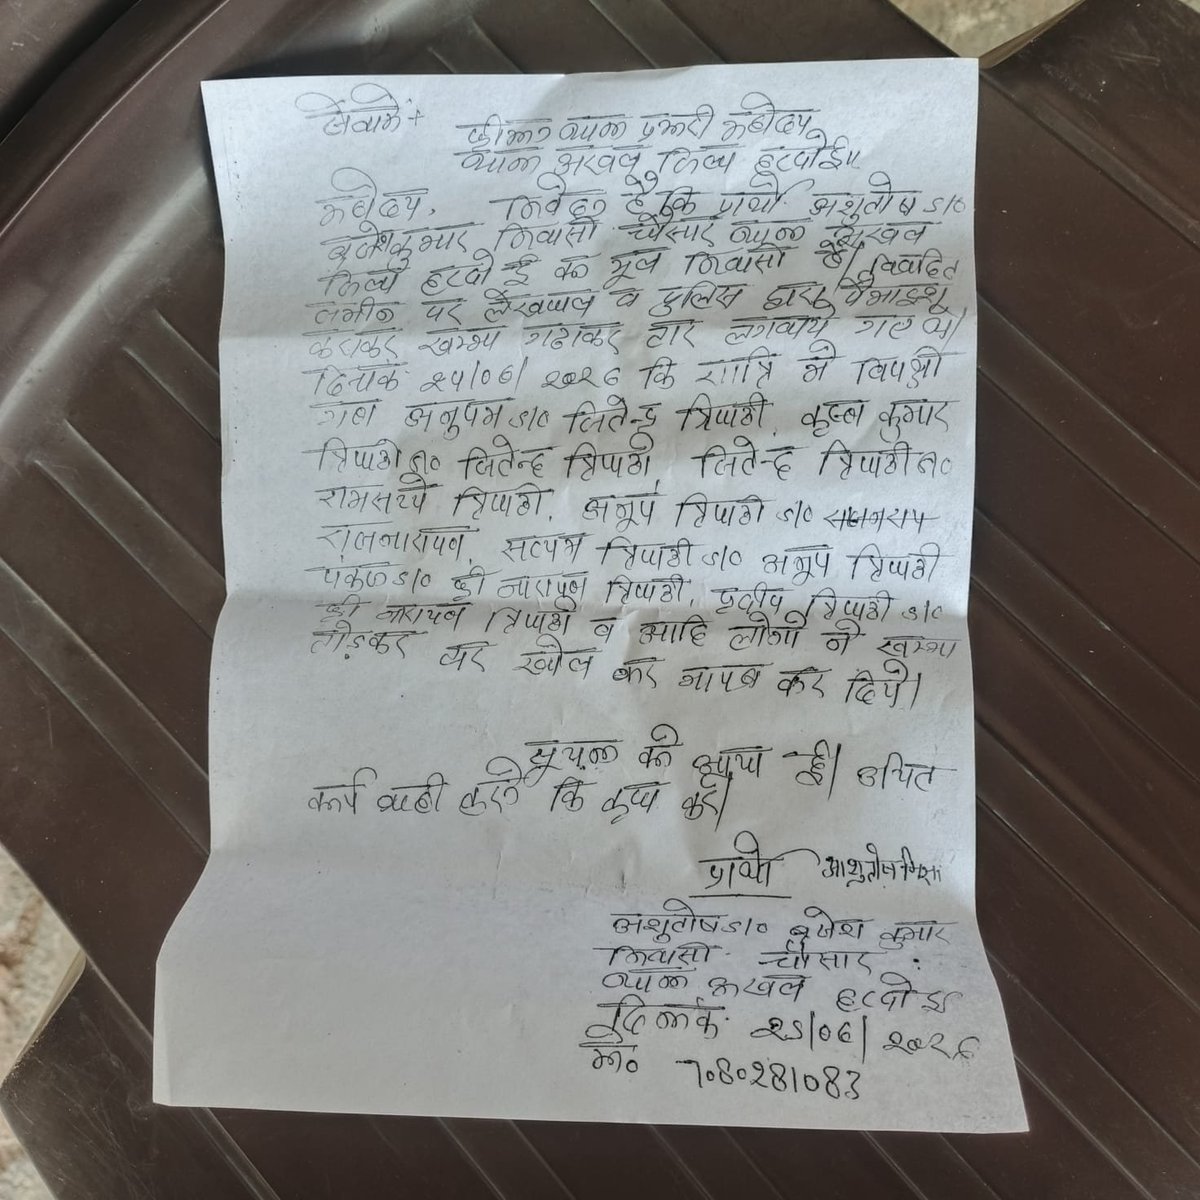 सेवामें
श्रीमान थाना प्रभारी महोदय
थाना अरवल जिला हरदोई॥
महोदय, निवेदन है कि प्रार्थी अशुतोष S/०
बृजेश कुमार निवासी चौंसार थाना अरवल
जिला हरदोई का मूल निवासी है। विवादित
जमीन पर लेखपाल व पुलिस द्वारा पैमाइश
कराकर खम्भा गढाकर तार लगवाये गए थे।
दिनांक २५/०६/२०२६ कि रात्रि मे विपक्षी
गण अनुपम S/० जितेन्द्र त्रिपाठी, कृष्ण कुमार
त्रिपाठी S/० जितेन्द्र त्रिपाठी जितेन्द्र त्रिपाठी S/०
रामसरूपे त्रिपाठी, अनूप त्रिपाठी S/०
राजनारायण, सत्यम त्रिपाठी S/० अनूप त्रिपाठी
पंकज S/० श्री नारायण त्रिपाठी, प्रदीप त्रिपाठी S/०
श्री नारायण त्रिपाठी व आदि लोगो ने खम्भा
तोड़कर तार खोल कर गायब कर दिये।
सूचना को आया हूँ। उचित
कार्यवाही करने कि कृपा करें।
प्रार्थी आशुतोष मिश्रा
अशुतोष S/० बृजेश कुमार
निवासी चौंसार
थाना अरवल हरदोई
दिनांक २६/०६/२०२६
मो० 7080281083